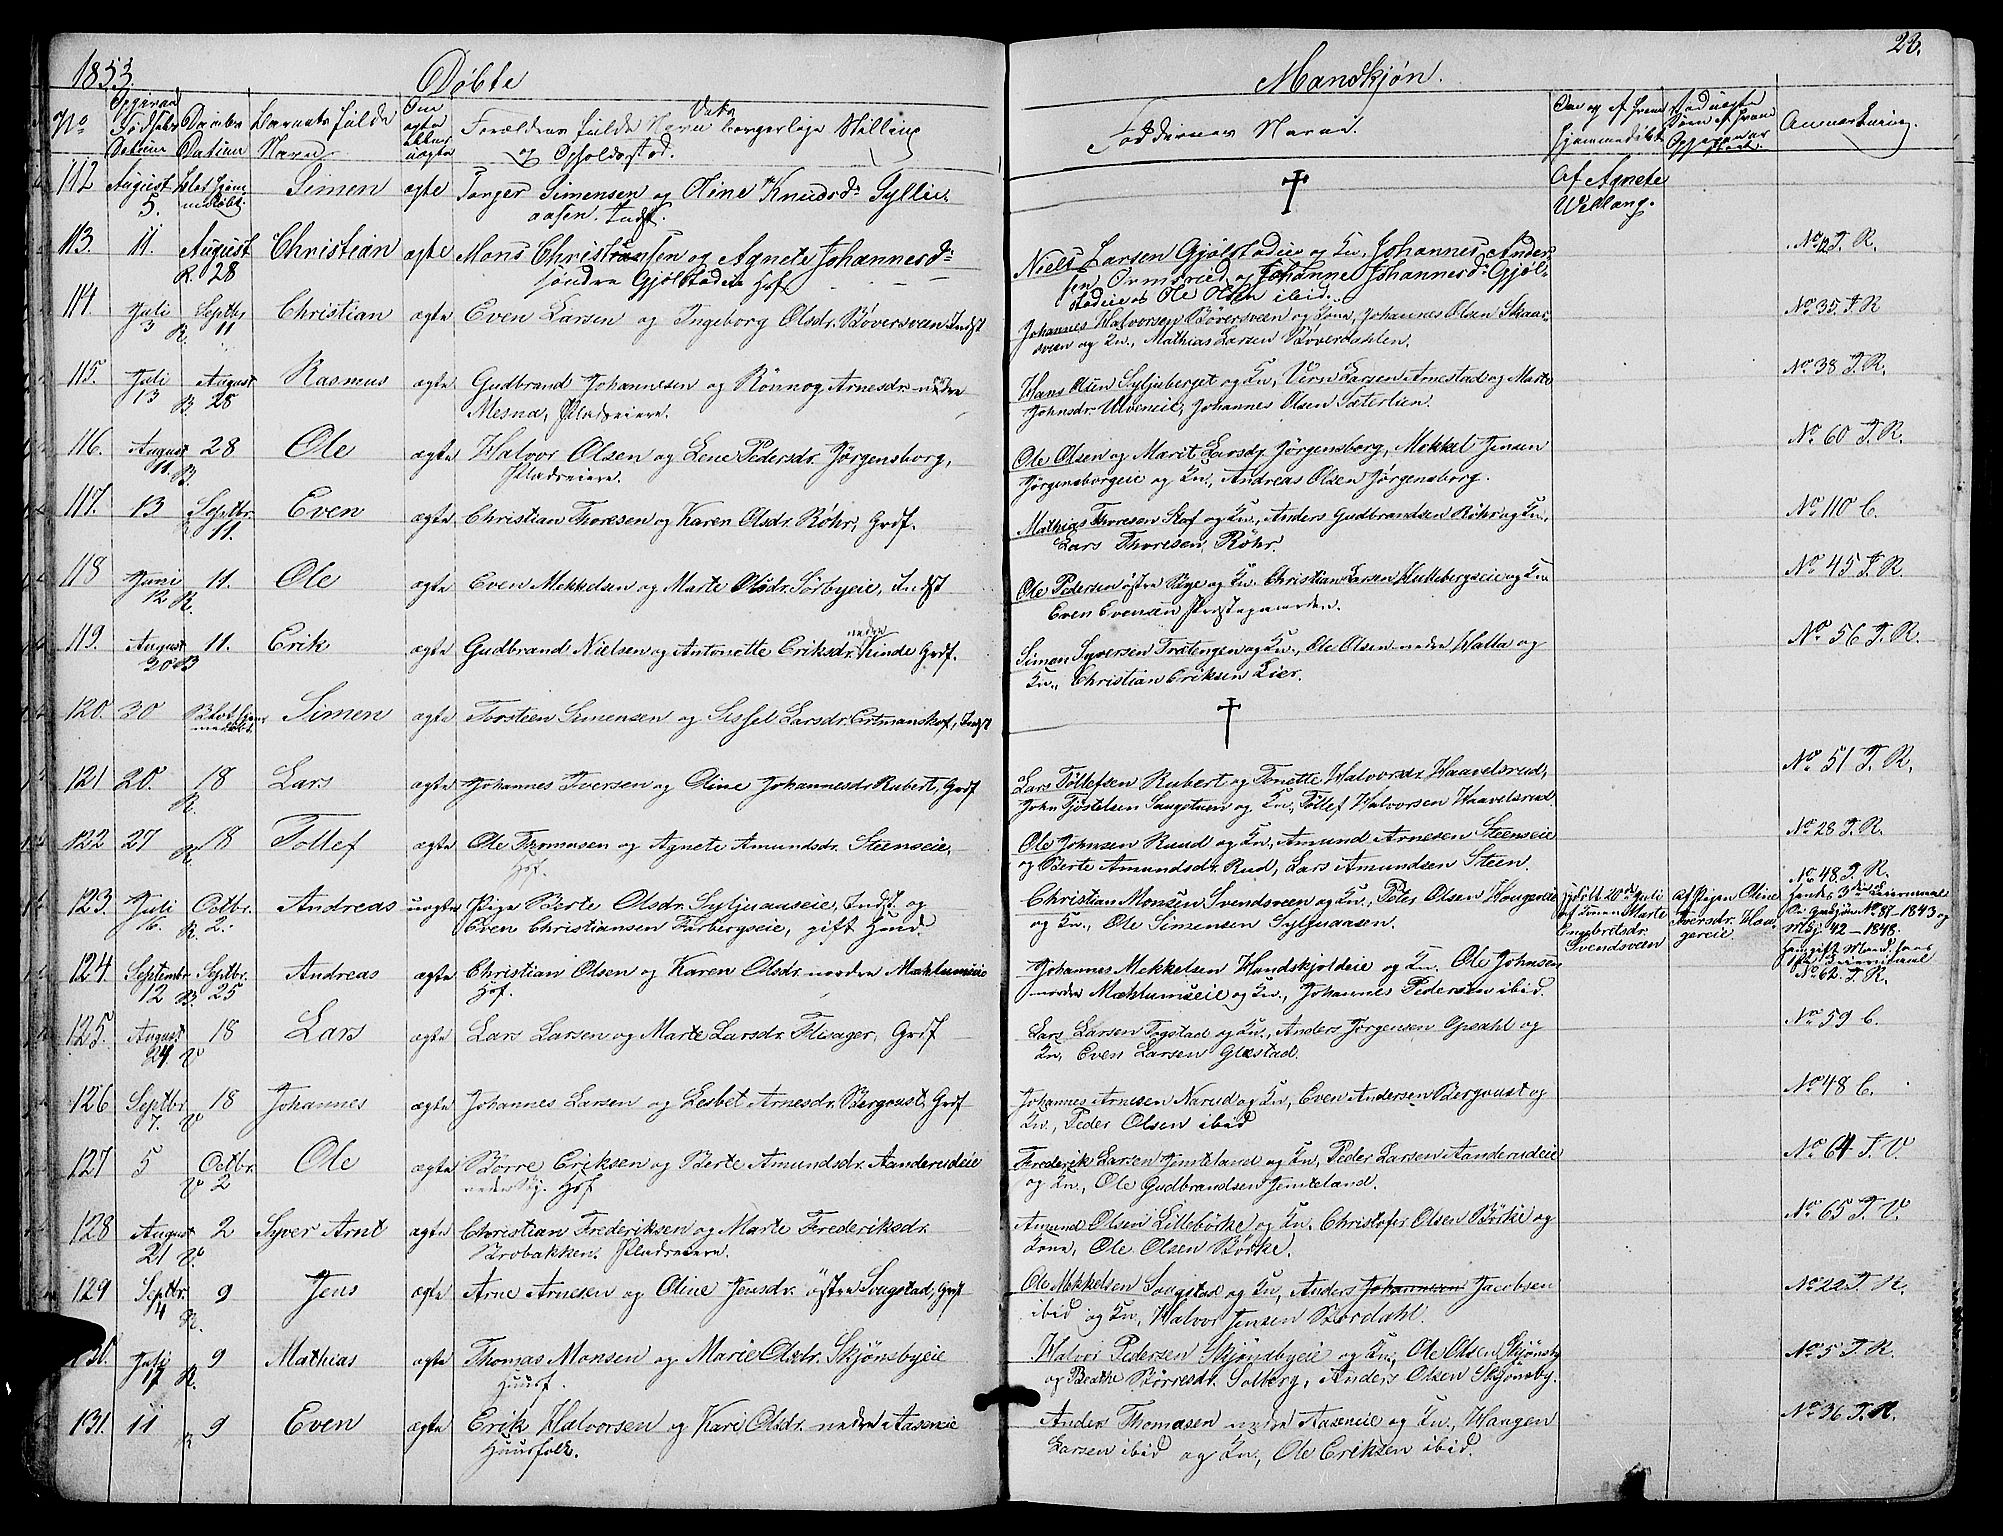 1853.
Døbte
Mandkjøn.
23.
No
Fødsels Datum
Daabs Datum
Barnets fulde Navn
Om ægte eller uægte
Forældres fulde Navn borgerlige Stilling
og Opholdssted.
Faddernes Navne.
Om og af hvem hjemmedøbt
Anmærkning.
112 August 5. Blot hjemmedøbt. Simen ægte Torger Simensen og Oline Knudsdr. Syllie-
aasen. Indst. † Af Agnete
113. 11. August R. 28 Christian ægte Mons Christiansen og Agnete Johannesdr.
søndre Gjølstadeie Hsf.
Niels Larsen Gjølstadeie og Kn, Johannes Ander-
sen Ormsrud og Johanne Johannesdr. Gjøl-
stadeie og Ole Olsen ibid. No 12 T. R.
114. Juli 3 R. Septbr 11 Christian ægte Even Larsen og Ingeborg Olsdr. Bøversveen Indst
Johannes Halvorsen Bøversveen og Kone, Johannes Olsen Skaar-
sveen og Kn., Mathias Larsen Bøverdahlen. No 35. T. R
115. Juli 13 R. August 28 Rasmus ægte Gudbrand Johannesen og Rønnog Arnesdr. nedre
Mesna, Pladseiere.
Hans Olsen Syljuberget og Kn, Larsen Arnestad og Marte
Johnsdr. Ulveneie, Johannes Olsen Sæterlien. No 38 T. R.
116. August 11 B. 28 Ole ægte Halvor Olsen og Lene Pedersdr. Jørgensborg,
Pladseiere.
Ole Olsen og Marit Larsdr. Jørgensborg, Mekkel Jensen
Jørgensborgeie og Kn., Andreas Olsen Jørgensborg. No 60 T. R.
117. 13 Septbr. 11. Even ægte Christian Thoresen og Karen Olsdr. Røhr, Grdf.
Mathias Thoresen Stof og Kn., Anders Gudbrandsen Røhr og Kn.,
Lars Thoresen Røhr. No 110 C.
118 Juni 12 R. 11. Ole ægte Even Mekkelsen og Marte Olsdr. Sørbyeie, Indst
Ole Pedersen østre Bye og Kn. Christian Larsen Hullebergseie og Kn
Even Evensen Præstegaarden. No 45 T. R
119. August 30 B 11. Erik ægte Gudbrand Nielsen og Antonette Eriksdr. nedre Kinde Grdf.
Simen Syversen Trætengen og Kn., Ole Olsen nedre Halla og
Kn., Christian Eriksen Lier. No 56 T. R.
120. 30 Blot hjemmedøbt. Simen ægte Torsteen Simensen og Sissel Larsdr. Ertmanskof, Indst †
121 20. R. 18 Lars ægte Johannes Iversen og Oline Johannesdr. Rubert, Grdf
Lars Tøllefsen Rubert og Tonette Halvorsdr. Haavelsrud,
John Tjøstelsen Saugstuen og Kn., Tøllef Halvorsen Haavelsrud. No 51 T. R.
122 27 R. 18 Tollef ægte Ole Thomasen og Agnete Amundsdr. Steenseie,
Hsf.
Ole Johnsen Ruud og Kn., Amund Arnesen Steenseie
og Berte Amundsdr. Rud, Lars Amundsen Steen. No 28 T. R.
123. Juli 16. R. Octbr. 2. Andreas uægte Pige Berte Olsdr. Syljuaaseie, Indst og
Even Christiansen Farbergseie, gift Huusd.
Christian Monsen Svendsveen og Kn., Peter Olsen Haugereie
og Kn., Ole Simensen Syljuaasen.
hjdøbt 20de Juli
af Konen Marte
Engebritsdr.
Svendsveen
Af Pigen Oline
Iversdr. Hau-
gereie
No 48 T. R.
hendes 3die Leiermaal
No 87-1843 og
42-1848.
No 62. T. R.
124. Septembr. 12 B. Septbr. 25 Andreas ægte Christian Olsen og Karen Olsdr. nordre Mæhlumseie
Hsf.
Johannes Mekkelsen Handskjoldeie og Kn. Ole Johnsen
nordre Mæhlumseie og Kn., Johannes Pedersen ibid.
125. August 24 V 18 Lars ægte Lars Larsen og Marte Larsdr. Flisager, Grdf
Lars Larsen Togstad og Kn., Anders Jørgensen Opsahl og
Kn, Even Larsen Glæstad. No 59 C.
126 Septbr. 7. V 18 Johannes ægte Johannes Larsen og Lesbet Arnesdr. Bergoust, Grdf
Johannes Arnesen Narud og Kn, Even Andersen Bergoust og
Kn., Peder Olsen ibid No 48 C.
127 5 V Octbr. 2 Ole ægte Børre Eriksen og Berte Amundsdr. Aanderudeie
Hsf
Frederik Larsen Jemteland og Kn, Peder Larsen Aanderudeie
og Kn., Ole Gudbrandsen Jemteland. No 64 T. V.
128 August 21 V. 2 Syver Arnt ægte Christian Frederiksen og Marte Frederiksdr.
Brobakken. Pladseiere.
Amund Olsen Lillebørke og Kn. Christofer Olsen Børke og
Kone, Ole Olsen Børke. No 65 T. V.
129 Septbr. 4 R. 9 Jens ægte Arne Arnesen og Oline Jensdr. østre Saugstad, Grdf
Ole Mekkelsen Saugstad og Kn, Anders Johannesen Jacobsen
ibid og Kn, Halvor Jensen Bordahl. No 22 T. R.
130. Juli 17 R. 9 Mathias ægte Thomas Monsen og Marie Olsdr. Skjønsbyeie
Huusf.
Halvor Pedersen Skjønsbyeie og Kn., Ole Olsen Skjønsby
og Beathe Børresdr. Solberg, Anders Olsen Skjønsby. No 5 T. R.
131. 11 R 9 Even ægte Erik Halvorsen og Kari Olsdr. nedre Aaseneie
Huusfolk.
Anders Thomasen nedre Aaseneie og Kn, Haagen
Larsen ibid og Kn., Ole Eriksen ibid. No 36 T. R.